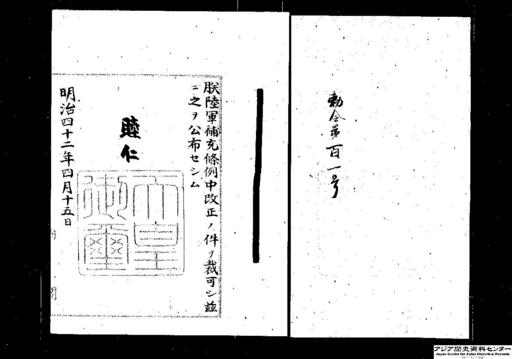 勅令第百一号
朕陸軍補充條例中改正ノ件ヲ裁可シ茲
ニ之ヲ公布セシム
睦仁
天皇
御璽
明治四十二年四月十五日
アジア歴史資料センター
Japan Center for Asian Historical Records